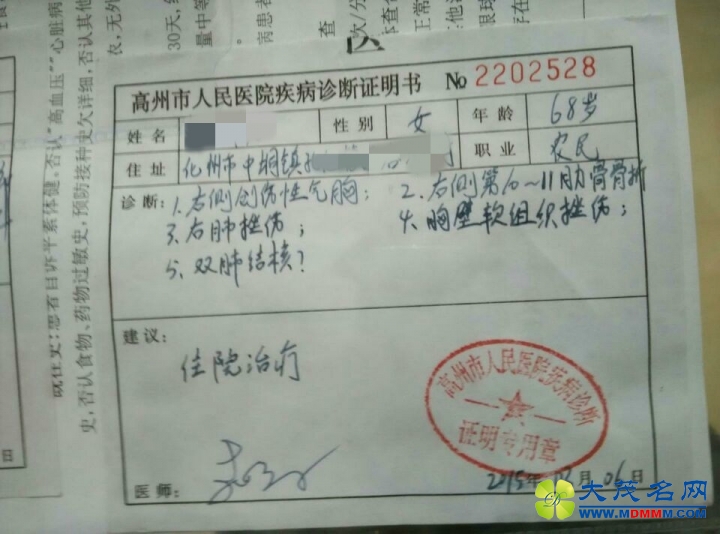 30天,
量中等
病患者
查
次/分
本查合
正常
高州市人民医院疾病诊断证明书 No 2202528
姓名 性别 女 年龄 68岁
住址 化州市中垌镇 职业 农民
诊断: 1. 右侧创伤性气胸; 2. 右侧第10~11肋骨骨折
3. 右肺挫伤; 4. 胸壁软组织挫伤;
5. 双肺结核?
建议:
住院治疗
高州市人民医院疾病诊断
证明专用章
医师:
2015年 月06日
既往史:患者自诉平素体健。否认"高血压""心脏病
史,否认食物、药物过敏史,预防接种史欠详细,否认其他
衣,无外
日
大茂名网
www.MDMMM.com